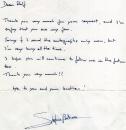 Dear Ralf
Thank you very much for your request, and I'm
enjoy that you are my fan.
Sorry if I send the autographs only now, but
I'm very busy all the time.
I hope you will continue to follow me in the future
too.
Thank you very much!!
to you and your brother!